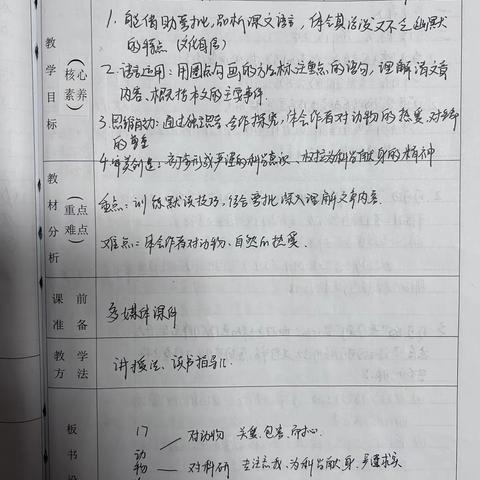 教学目标（核心素养）
1. 能借助旁批，品析课文语言，体会其活泼又不乏幽默
的特点（文化自信）
2. 语言运用：用圈点勾画的方法标注重点的语句，理解清文章
内容、概括本文的主要事件.
3. 思维能力：通过独立思考、合作探究，体会作者对动物的热爱、对生命
的尊重
4. 审美创造：初步形成严谨的科学意识、为科学献身的精神
教材分析（重点难点）
重点：训练默读技巧，结合旁批深入理解文章内容.
难点：体会作者对动物、自然的热爱.
课前准备
多媒体课件
教学方法
讲授法、读书指导法.
板书设
17
动物
对动物 关爱、包容、耐心.
对科研 专注忘我、为科学献身、严谨求实